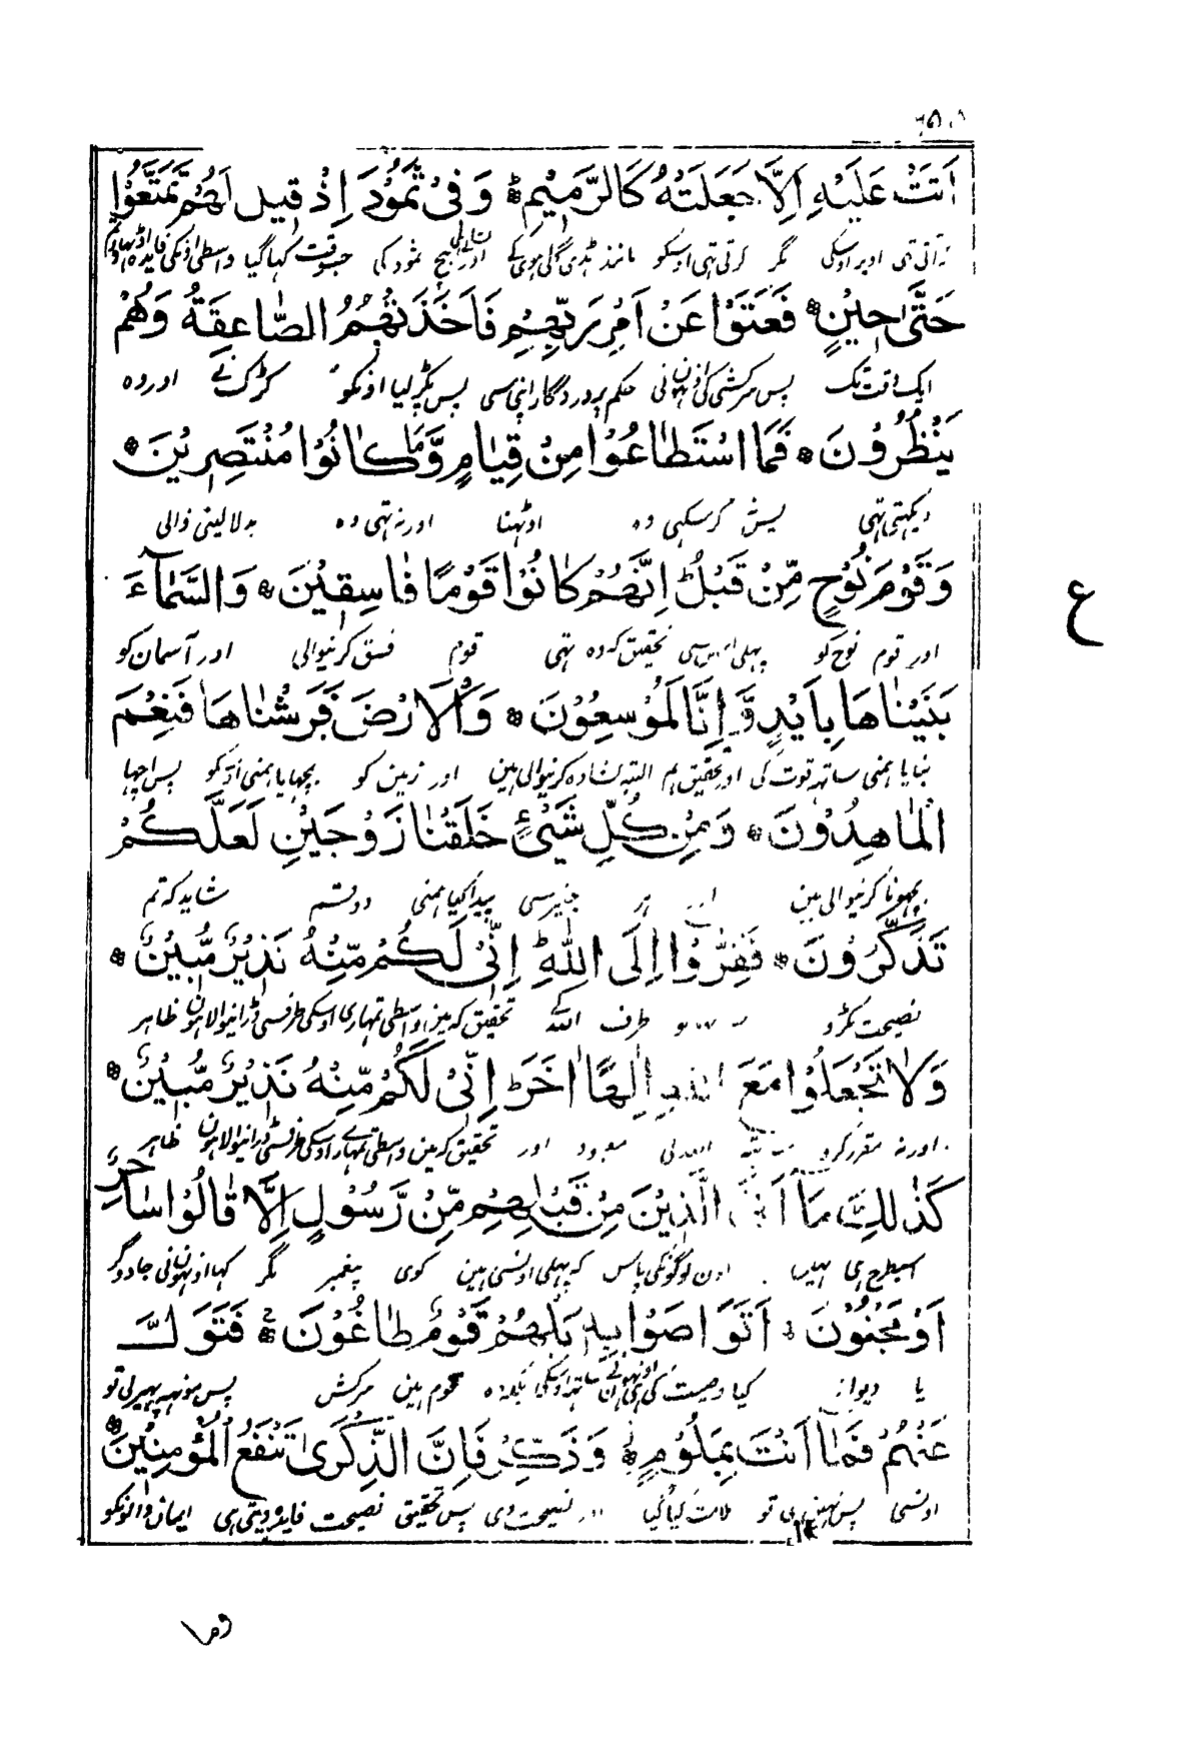 اَتَتْ عَلَيْهِ اِلَّا جَعَلَتْهُ كَالرَّمِيْمِ وَفِىْ ثَمُوْدَ اِذْ قِيْلَ لَهُمْ تَمَتَّعُوْا
اوپر اوسکی مگر کرتی تہی اوسکو مانند ہڈی گلی ہوی کے اور بیچ ثمود کی جسوقت کہا گیا واسطی اونکی فایدہ اوٹہاؤ تم
حَتّٰى حِيْنٍ فَعَتَوْا عَنْ اَمْرِ رَبِّهِمْ فَاَخَذَتْهُمُ الصَّاعِقَةُ وَهُمْ
ایک وقت تک پس سرکشی کی اونہونی حکم پروردگار اپنی سی پس پکڑ لیا اونکو کڑک نے اور وہ
يَنْظُرُوْنَ فَمَا اسْتَطَاعُوْا مِنْ قِيَامٍ وَّمَا كَانُوْا مُنْتَصِرِيْنَ
دیکہتی تہی پس نہ کرسکہی وہ اوٹہنا اور نہ تہی وہ بدلا لینی والی
وَقَوْمَ نُوْحٍ مِّنْ قَبْلُ اِنَّهُمْ كَانُوْا قَوْمًا فَاسِقِيْنَ وَالسَّمَآءَ
اور قوم نوح کو پہلی اس سی تحقیق کہ وہ تہی قوم فسق کرنیوالی اور آسمان کو
بَنَيْنٰاهَا بِاَيْدٍ وَّاِنَّا لَمُوْسِعُوْنَ وَالْاَرْضَ فَرَشْنٰاهَا فَنِعْمَ
بنایا ہمنی ساتہہ قوت کی اور تحقیق ہم البتہ کشادہ کرنیوالی ہین اور زمین کو بچہایا ہمنی اوسکو پس اچہا
الْمٰاهِدُوْنَ وَمِنْ كُلِّ شَيْئٍ خَلَقْنٰا زَوْجَيْنِ لَعَلَّكُمْ
بچہونا کرنیوالی ہین ہر چیز سی پیدا کیا ہمنی دو قسم شاید کہ تم
تَذَكَّرُوْنَ فَفِرُّوْا اِلَى اللهِ اِنِّىْ لَكُمْ مِّنْهُ نَذِيْرٌ مُّبِيْنٌ
نصیحت پکڑو طرف اللہ کے تحقیق کہ مین واسطی تمہاری اوسکی طرف سی ڈرانیوالا ہون ظاہر
وَلَا تَجْعَلُوْا مَعَ اِلٰهًا اٰخَرَ اِنِّىْ لَكُمْ مِّنْهُ نَذِيْرٌ مُّبِيْنٌ
اور نہ مقرر کرو معبود اور تحقیق کہ مین واسطی تمہارے اوسکی طرف سی ڈرانیوالا ہون ظاہر
كَذٰلِكَ مَا اَتَى الَّذِيْنَ مِنْ قَبْلِهِمْ مِّنْ رَّسُوْلٍ اِلَّا قَالُوْا سَاحِرٌ
اسیطرح ہی اون لوگونکی پاس کہ پہلی اونسی ہین کوی پیغمبر مگر کہا اونہونی جادوگر
اَوْ مَجْنُوْنٌ اَتَوَاصَوْا بِهٖ بَلْ هُمْ قَوْمٌ طَاغُوْنَ فَتَوَلَّ
یا دیوانہ کیا وصیت کی تہی اونہونے ساتہہ اوسکی بلکہ وہ قوم ہین سرکش پس مونہہ پہیر لی تو
عَنْهُمْ فَمَا اَنْتَ بِمَلُوْمٍ وَذَكِّرْ فَاِنَّ الذِّكْرٰى تَنْفَعُ الْمُؤْمِنِيْنَ
اونسی پس نہین ہی تو ملامت کیا گیا اور نصیحت دی پس تحقیق نصیحت فایدہ دیتی ہی ایمان والونکو
ع